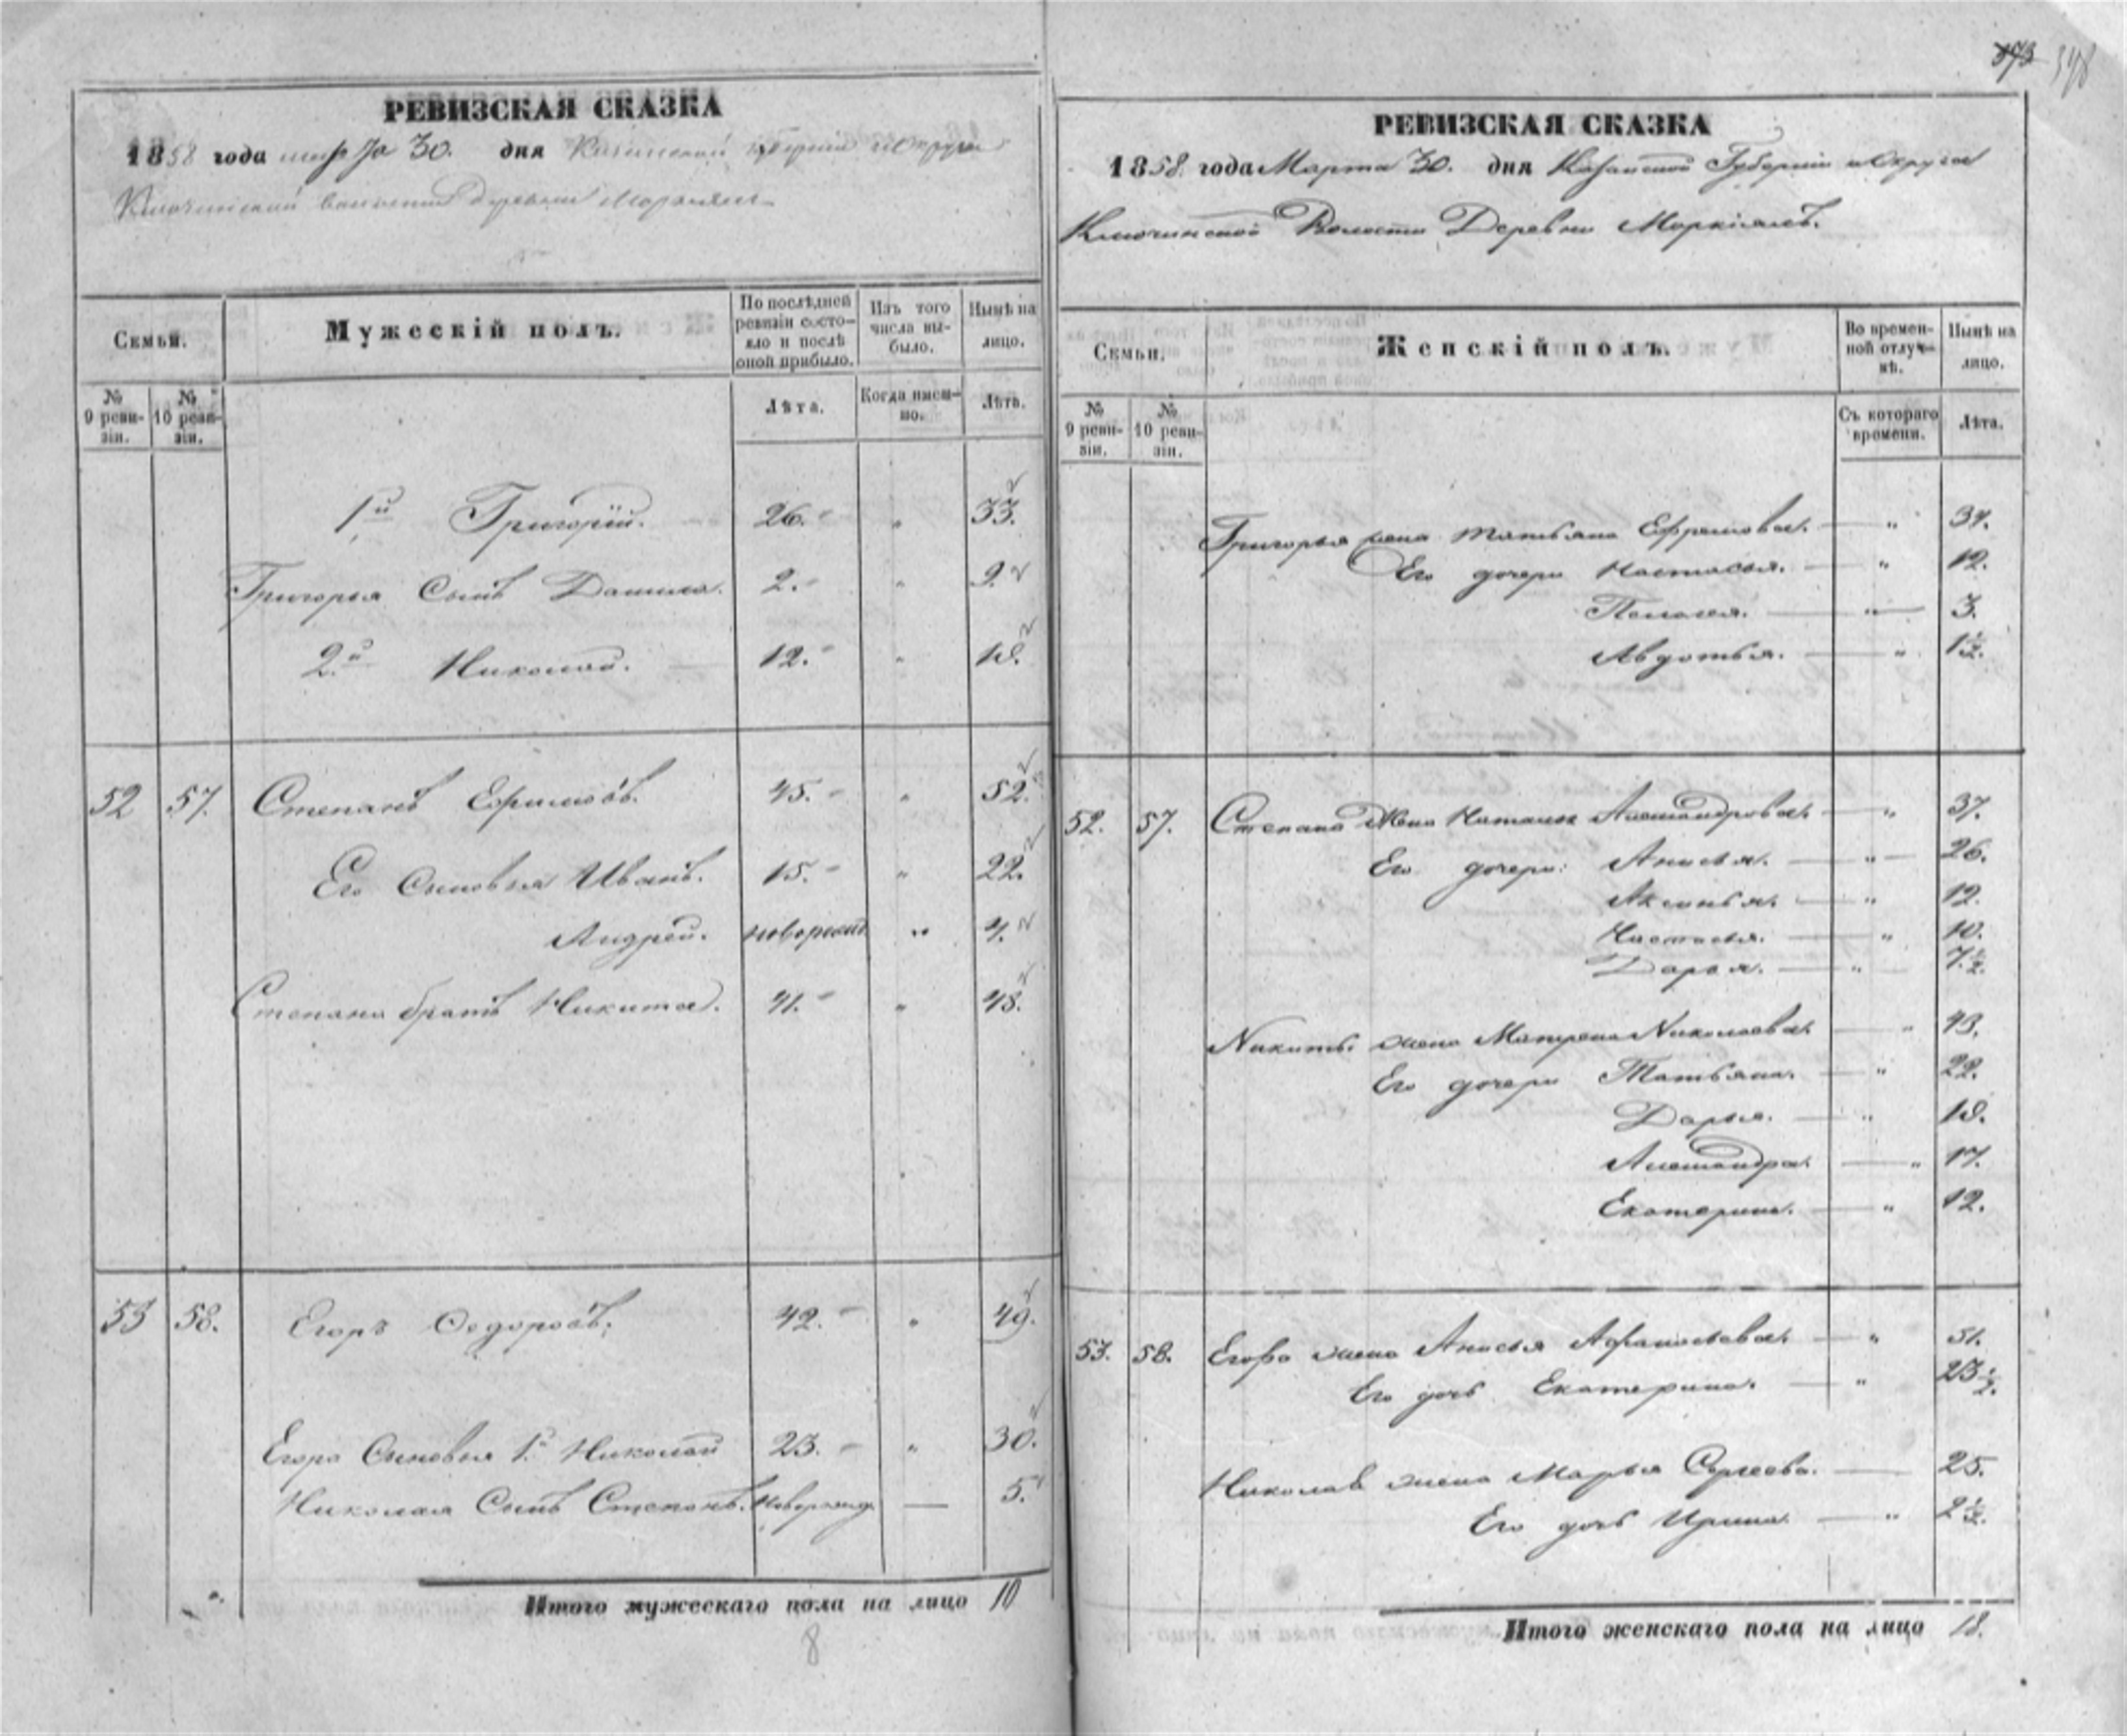 РЕВИЗСКАЯ СКАЗКА
1858 года марта 30. дня Казанской губернии и Округи
Ключинской волости Деревни
Семьи.
Мужескій полъ.
По послѣдней ревизіи состояло и послѣ оной прибыло.
Изъ того числа выбыло.
Нынѣ на лицо.
№ 9 ревизіи.
№ 10 ревизіи.
Лѣта.
Когда именно.
Лѣта.
1й Григорій. 26. " 33.
Григорья Сынъ Данила. 2. " 9.
2й Николай. 12. " 19.
52 57. Степанъ Ефимовъ. 45. " 52.
Его Сыновья Иванъ. 15. " 22.
Андрей. новорожд " 4.
Степана братъ Никита. 41. " 48.
53 58. Егоръ Федоровъ. 42. " 49.
Егора Сыновья 1й Николай 23. " 30.
Николая Сынъ Степанъ. Новорожд. — 5.
Итого мужескаго пола на лицо 10
8
373 378
РЕВИЗСКАЯ СКАЗКА
1858. года Марта 30. дня Казанской Губерніи и Округа
Ключинской Волости Деревни
Семьи.
Женскій полъ.
Во временной отлучкѣ.
Нынѣ на лицо.
№ 9 ревизіи.
№ 10 ревизіи.
Съ котораго времени.
Лѣта.
Григорья жена Татьяна Ефремова. — "
Его дочери Настасья. — " 12.
Пелагея. — " 3.
Авдотья. — " 1½.
52. 57. Степана Жена Наталья Александрова. — " 37.
Его дочери: Анисья. — " 26.
Аксинья. — " 12.
Настасья. — " 10.
Дарья. — " 7½.
Никиты жена Матрена Николаева. — " 43.
Его дочери Татьяна. — " 22.
Дарья. — " 19.
Александра. — " 17.
Екатерина. — " 12.
53. 58. Егора жена Анисья Афанасьева. — " 51.
Его дочь Екатерина. — " 23½.
Николая жена Марья Сергеева. — 25.
Его дочь Ирина. — " 2½.
Итого женскаго пола на лицо 18.